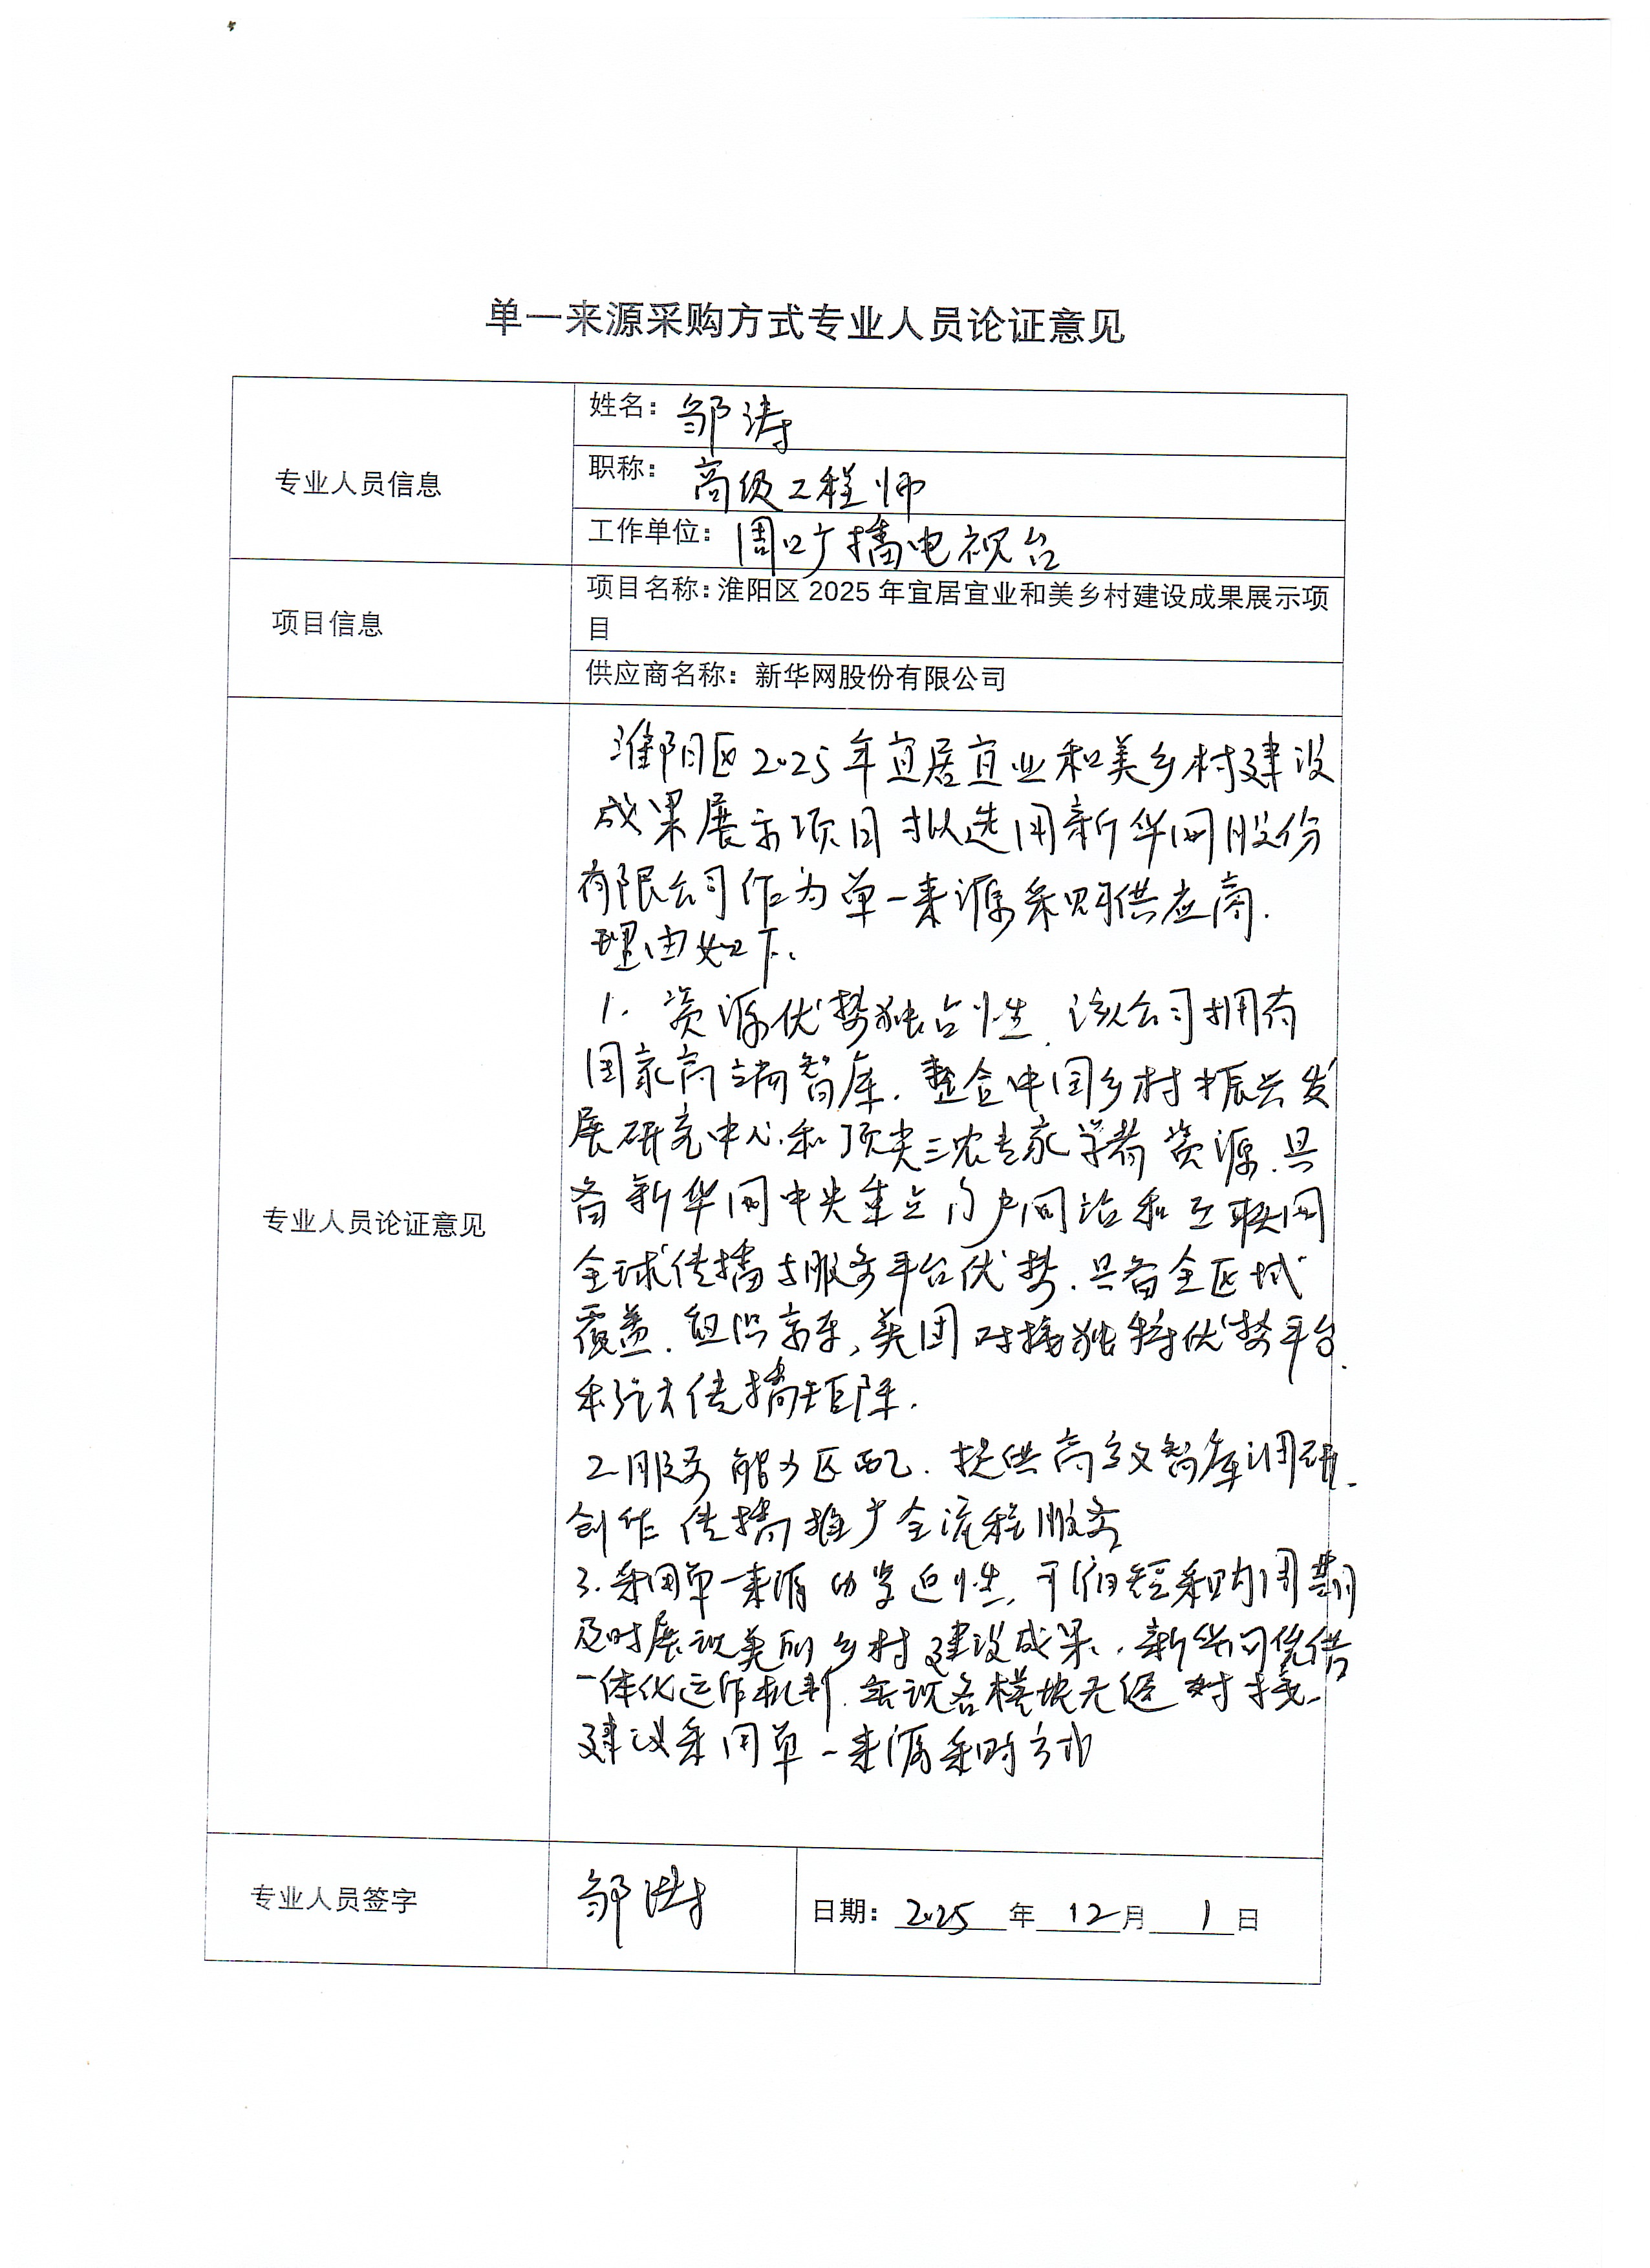 单一来源采购方式专业人员论证意见
专业人员信息
姓名：邹涛
职称：高级工程师
工作单位：周口广播电视台
项目信息
项目名称：淮阳区 2025 年宜居宜业和美乡村建设成果展示项
目
供应商名称：新华网股份有限公司
专业人员论证意见
淮阳区2025年宜居宜业和美乡村建设
成果展示项目拟选用新华网股份
有限公司作为单一来源采购供应商.
理由如下、
1. 资源优势独占性、该公司拥有
国家高端智库. 整合中国乡村振兴发
展研究中心和顶尖三农专家学者资源. 具
备新华网中央重点门户网站和互联网
全球传播与服务平台优势. 具备全区域
覆盖. 组织京东, 美团对接独特优势平台
和强大传播矩阵.
2. 服务能力匹配. 提供高效智库调研、
创作 传播推广全流程服务
3. 采用单一来源的紧迫性, 可缩短采购周期
及时展现美丽乡村建设成果. 新华网凭借
一体化运作机制. 实现各模块无缝对接、
建议采用单一来源采购方式
专业人员签字
邹涛
日期： 2025 年 12 月 1 日